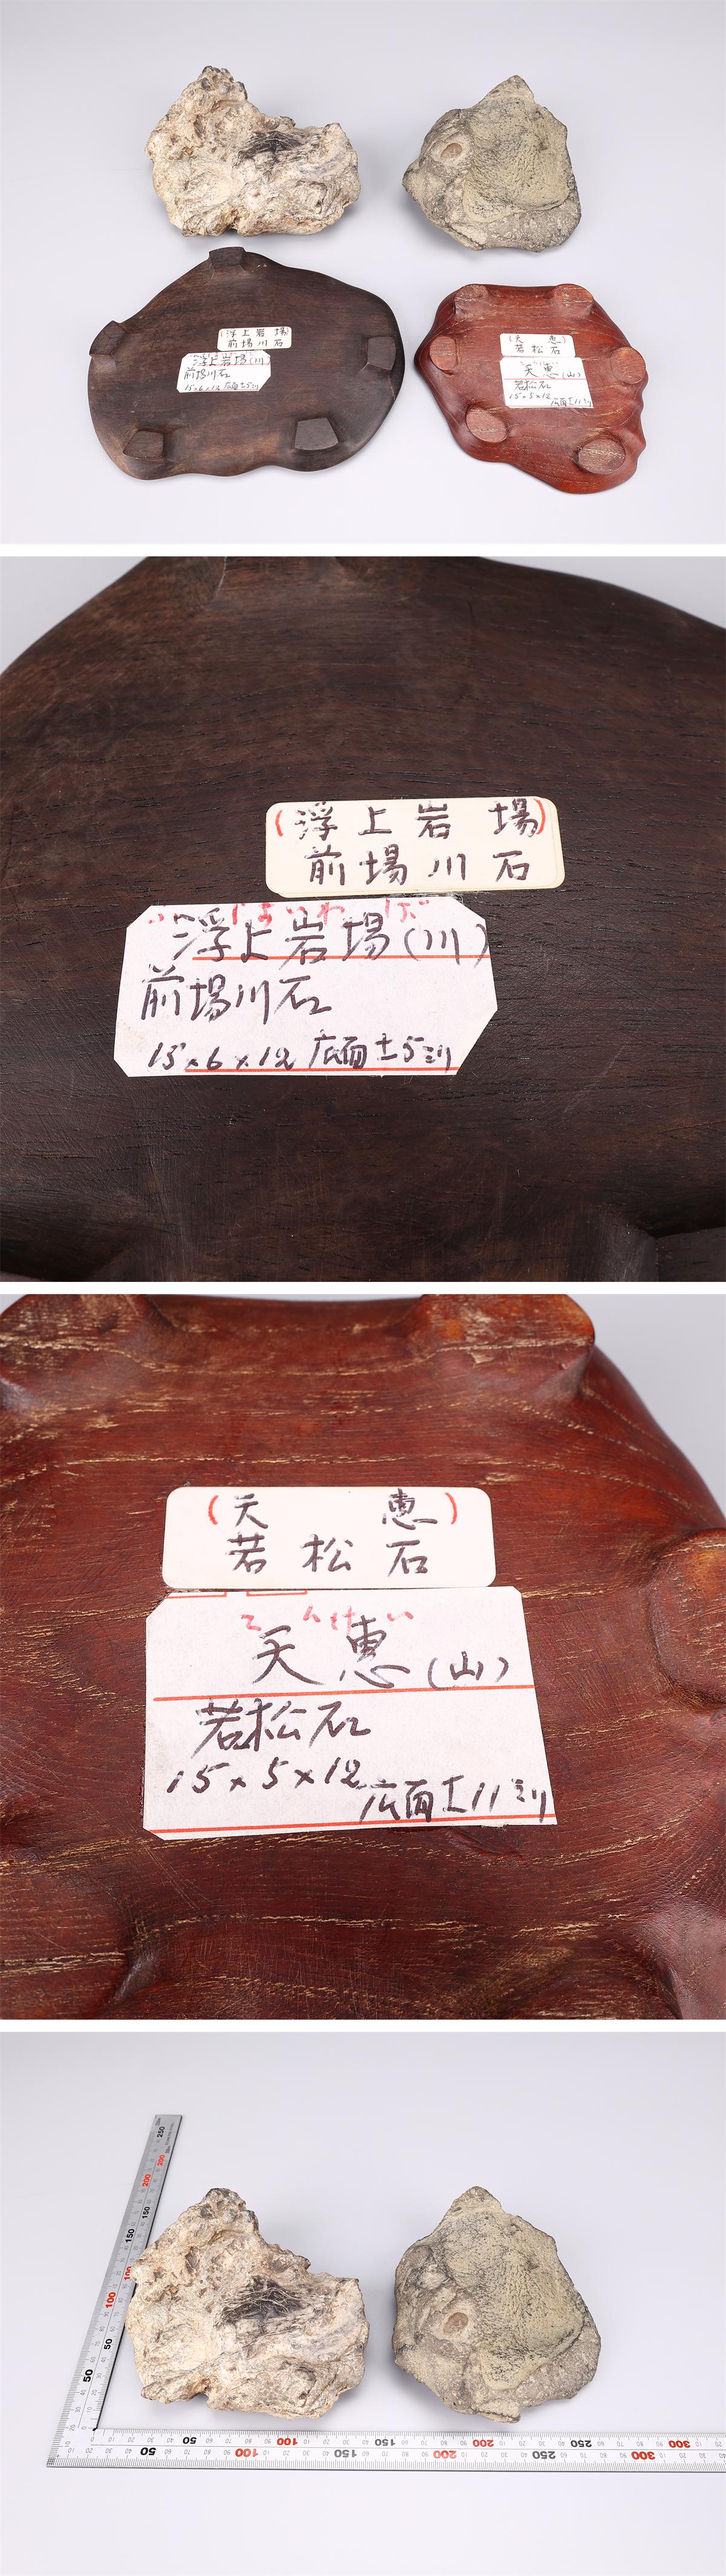 (浮上岩場)
前場川石
浮上岩場(川)
前場川石
15×6×12 広面±5ミリ
(天恵)
若松石
天恵(山)
若松石
15×5×12
広面±11ミリ
(浮上岩場)
前場川石
浮上岩場(川)
前場川石
15×6×12 広面±5ミリ
(天恵)
若松石
てんけい
天恵(山)
若松石
15×5×12
広面±11ミリ
250
200
200
150
150
100
100
50
50
50 100 150 200 250 300
50 100 150 200 250 300